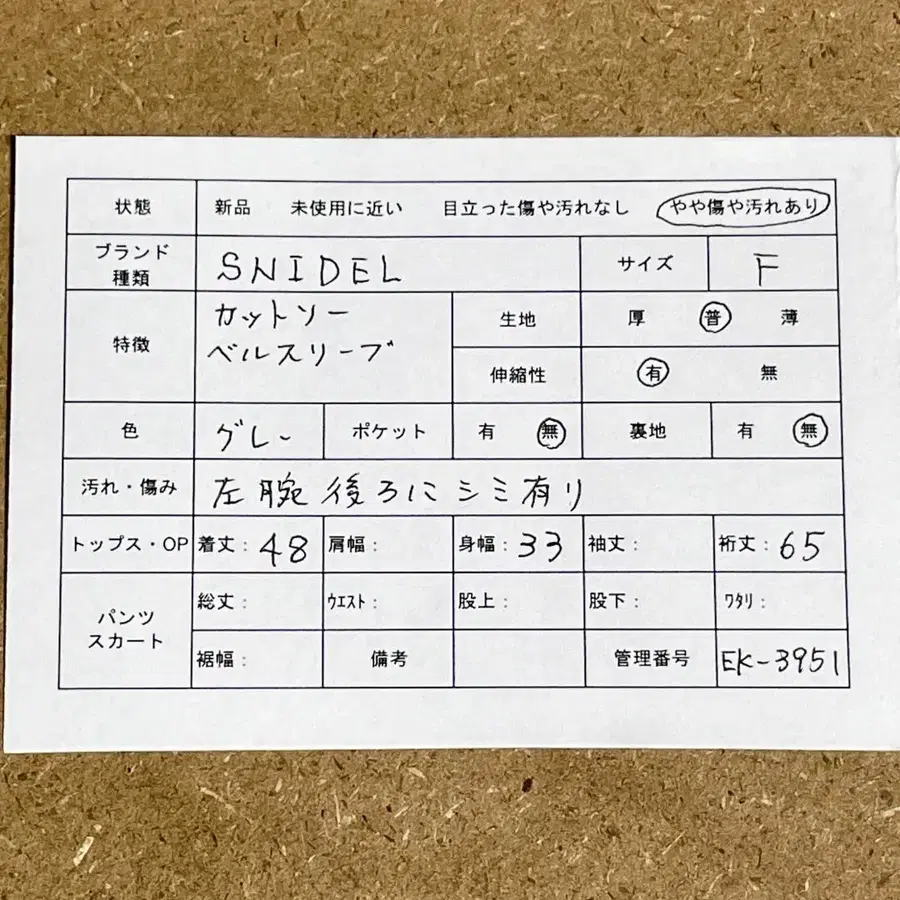 状態 新品 未使用に近い 目立った傷や汚れなし やや傷や汚れあり
ブランド
種類
SNIDEL
サイズ F
特徴
カットソー
ベルスリーブ
生地 厚 普 薄
伸縮性 有 無
色 グレー ポケット 有 無 裏地 有 無
汚れ・傷み 左腕後ろにシミ有り
トップス・OP 着丈: 48 肩幅: 身幅: 33 袖丈: 裄丈: 65
パンツ
スカート
総丈: ウエスト: 股上: 股下: ワタリ:
裾幅: 備考 管理番号 EK-3951